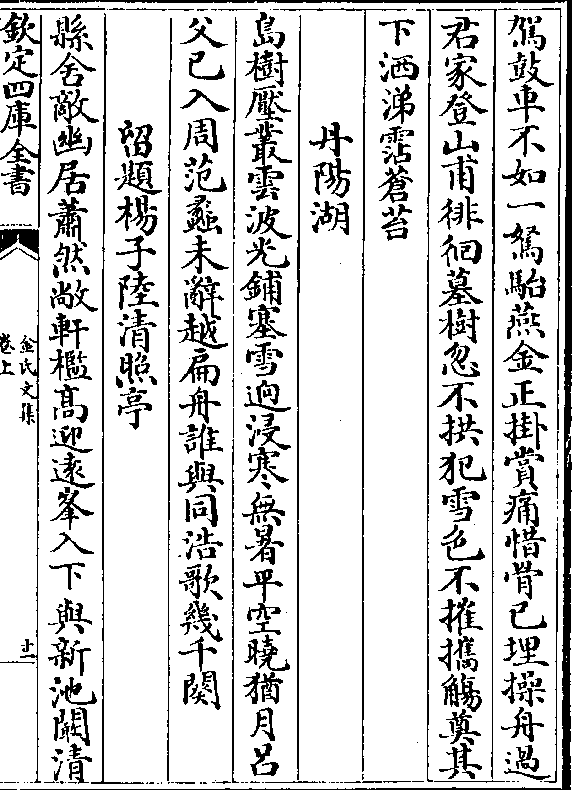 駕鼓車不如一駑駘燕金正掛賞痛惜骨已埋操舟過
君家登山甫徘徊墓樹忽不拱犯雪色不摧攜觴奠其
下洒涕霑蒼苔
丹陽湖
島樹壓叢雲波光鋪塞雪逈浸寒無暑平空曉猶月呂
父已入周范蠡未辭越扁舟誰與同浩歌幾千闋
留題楊子陸清照亭
縣舍敵幽居蕭然敞軒檻髙迎逺峯入下與新池闞清
欽定四庫全書
金氏文集
卷上
十一